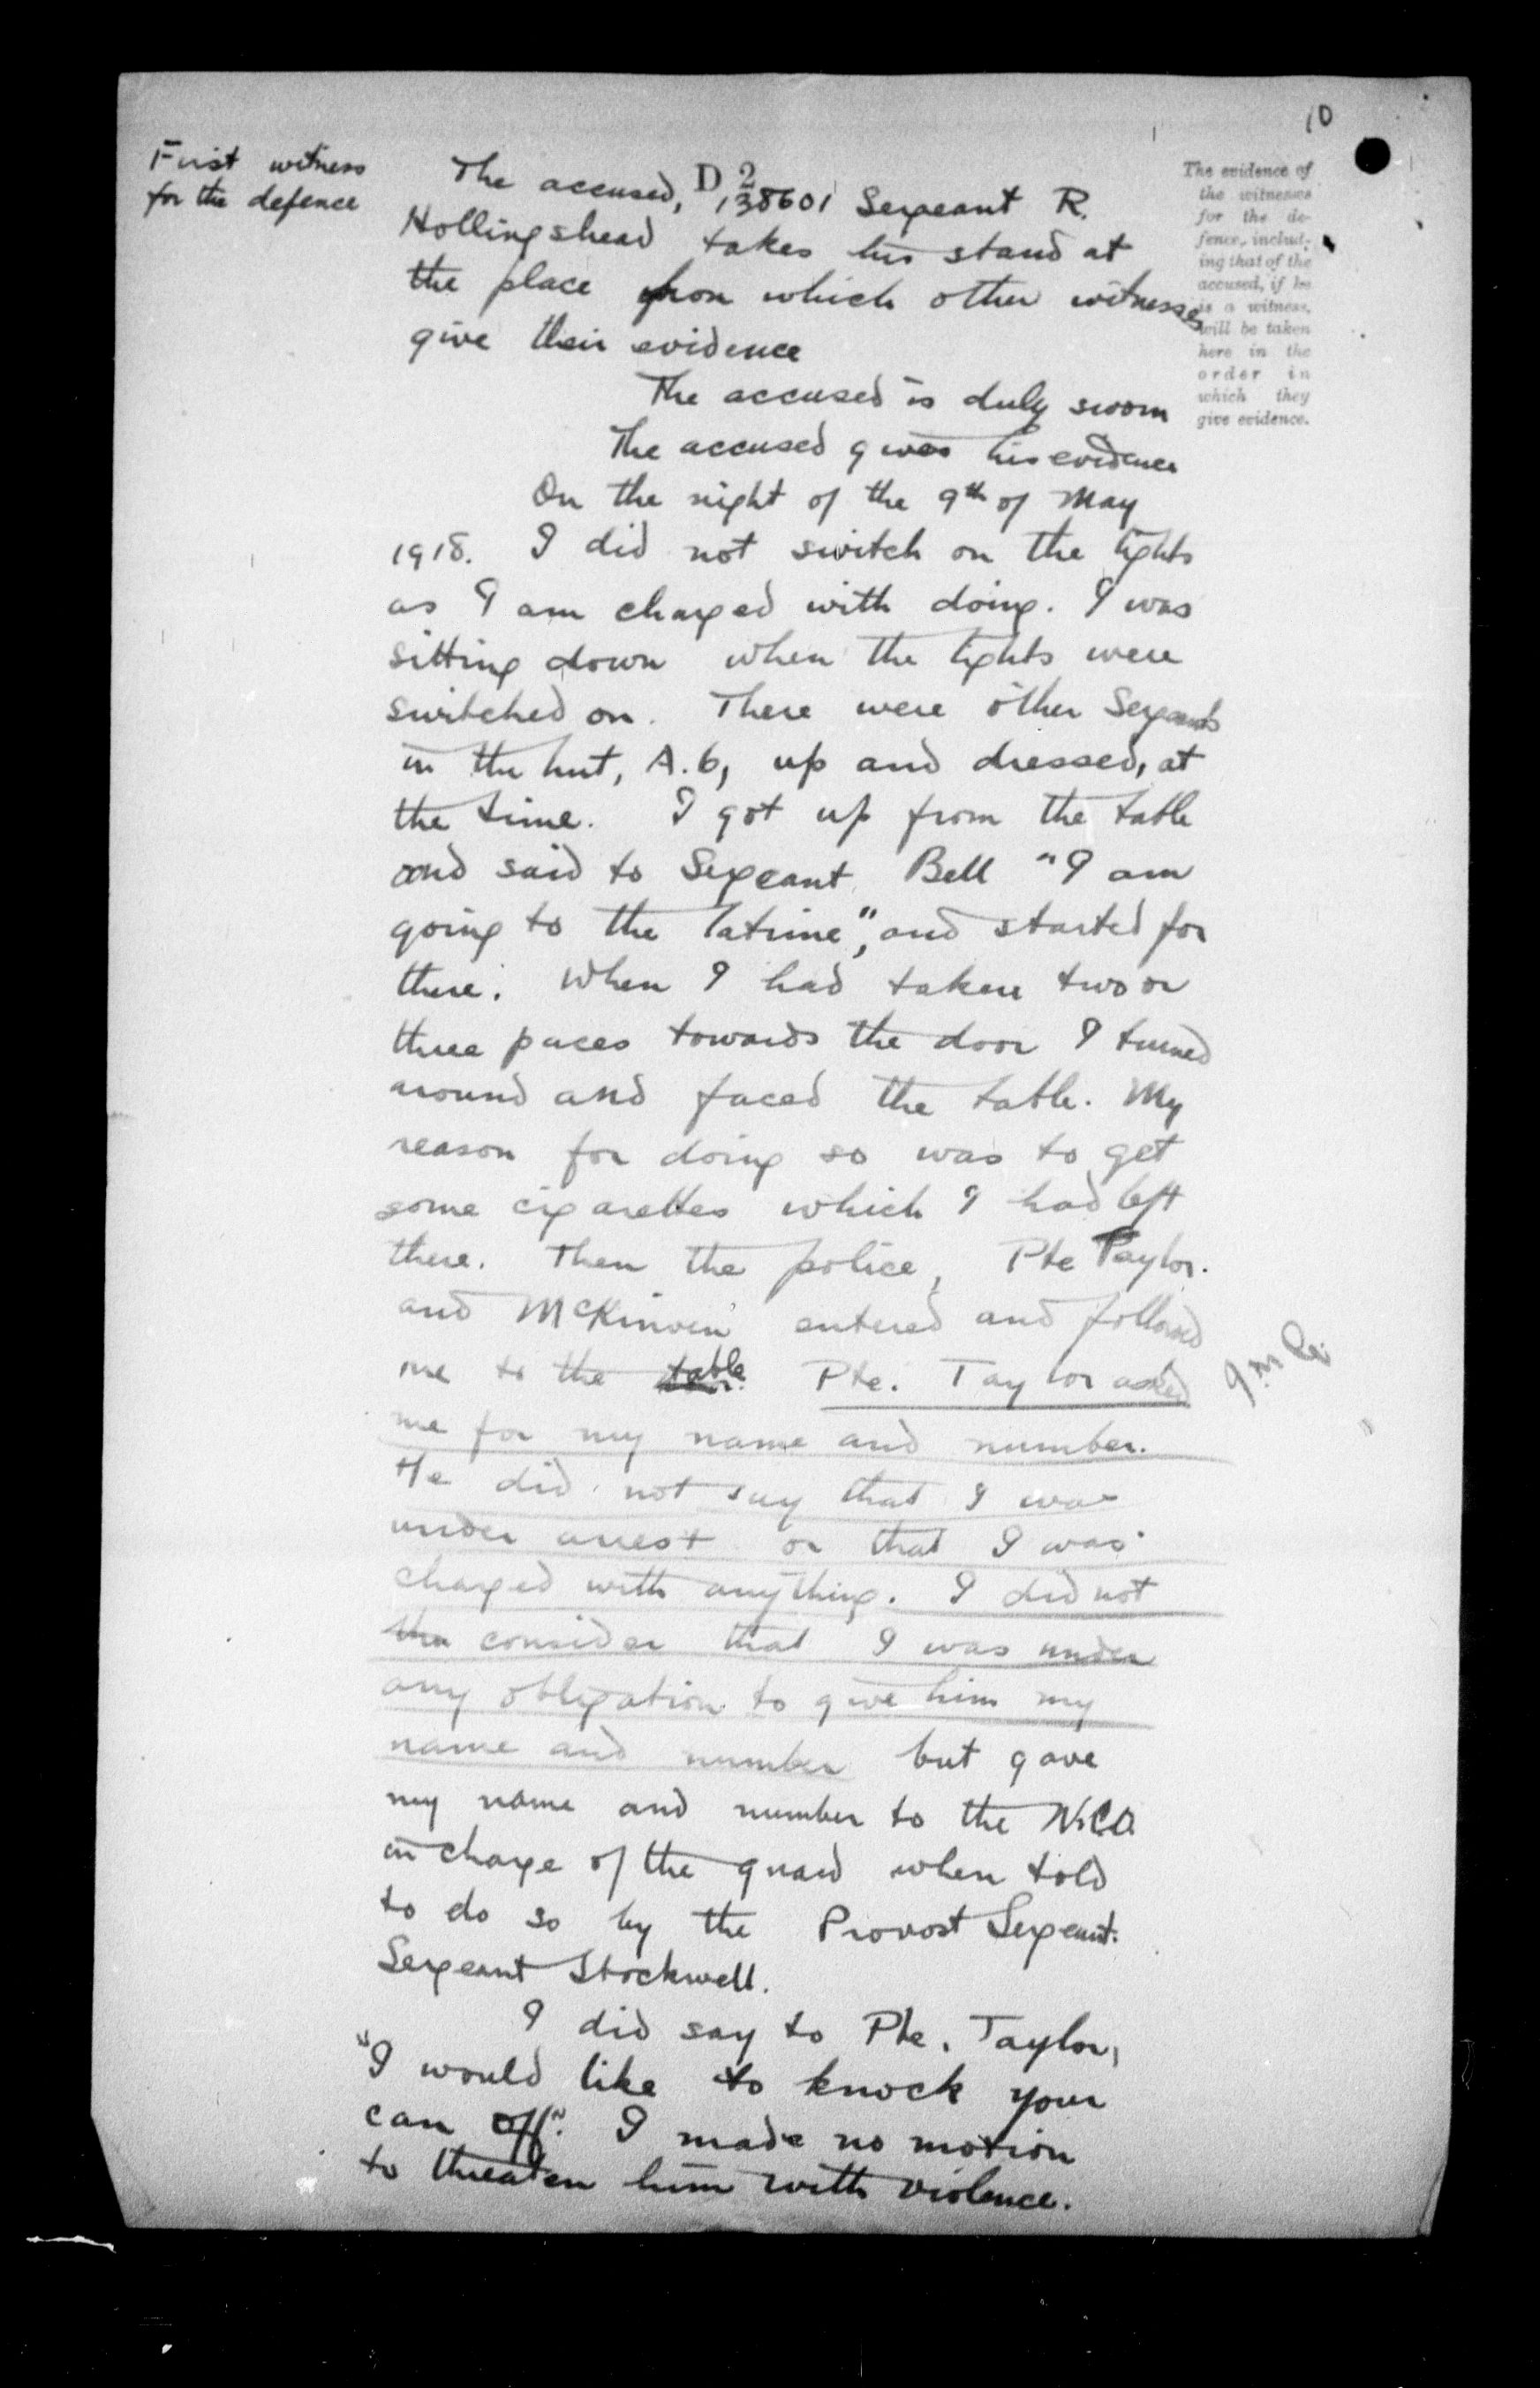 10
First witness
for the defence
D 2
The evidence of
the witnesses
for the de-
fence, includ-
ing that of the
accused, if he
is a witness,
will be taken
here in the
order in
which they
give evidence.
The accused, 138601 Sergeant R.
Hollingshead takes his stand at
the place from which other witnesses
give their evidence
The accused is duly sworn
The accused gives his evidence
On the night of the 9th of May
1918. I did not switch on the lights
as I am charged with doing. I was
sitting down when the lights were
switched on. There were other Sergeants
in the hut, A.6, up and dressed, at
the time. I got up from the table
and said to Sergeant Bell "I am
going to the latrine", and started for
there. When I had taken two or
three paces towards the door I turned
around and faced the table. My
reason for doing so was to get
some cigarettes which I had left
there. Then the police, Pte Taylor.
and McKinven entered and followed
me to the table. Pte. Taylor asked
me for my name and number.
He did not say that I was
under arrest or that I was
charged with anything. I did not
consider that I was under
any obligation to give him my
name and number but gave
my name and number to the N.C.O.
in charge of the guard when told
to do so by the Provost Sergeant.
Sergeant Stockwell.
I did say to Pte. Taylor,
"I would like to knock your
can off". I made no motion
to threaten him with violence.